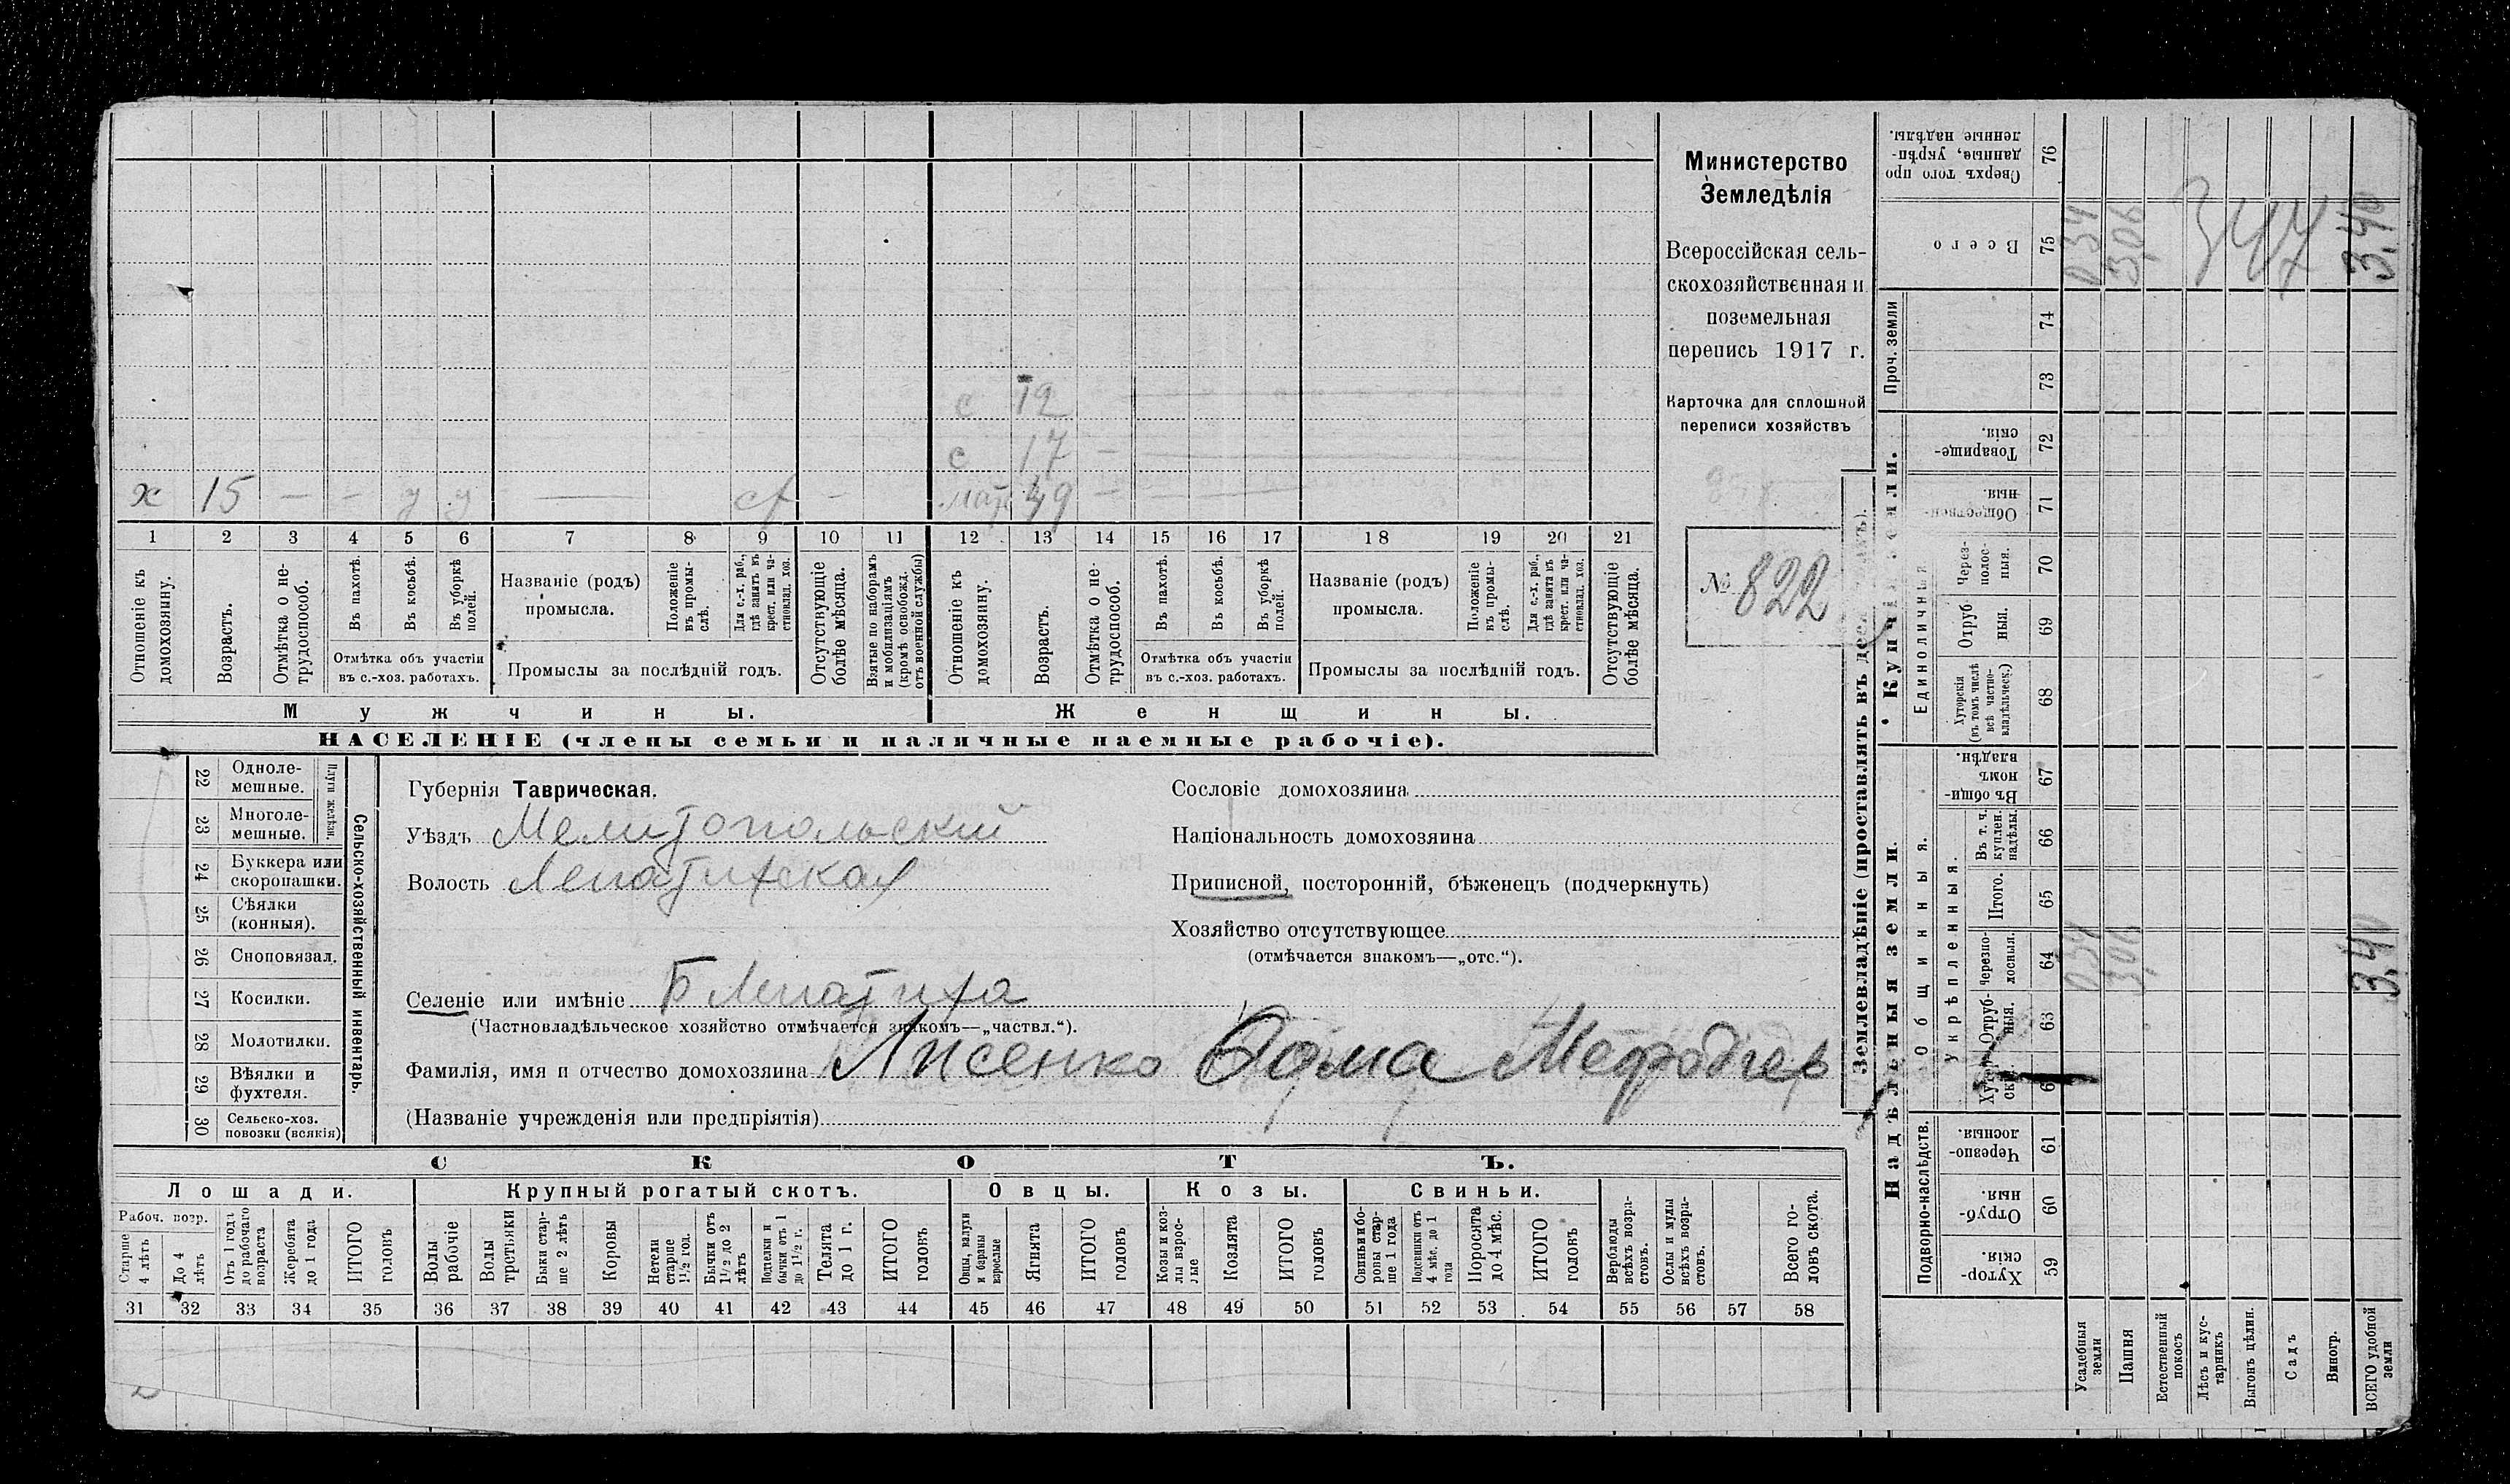 с 12
с 17 —
х 15 — — у у — —
мат 49 —
1 2 3 4 5 6 7 8 9 10 11 12 13 14 15 16 17 18 19 20 21
Отношеніе къ домохозяину.
Возрастъ.
Отмѣтка о не-трудоспособ.
Въ пахотѣ.
Въ косьбѣ.
Въ уборкѣ полей.
Отмѣтка объ участіи
въ с.-хоз. работахъ.
Названіе (родъ)
промысла.
Положеніе въ промы-слѣ.
Для с.-х. раб., гдѣ занятъ въ крест. или ча-стновлад. хоз.
Промыслы за послѣдній годъ.
Отсутствующіе болѣе мѣсяца.
Взятые по наборамъ и мобилизаціямъ (кромѣ освобожд. отъ военной службы)
Отношеніе къ домохозяину.
Возрастъ.
Отмѣтка о не-трудоспособ.
Въ пахотѣ.
Въ косьбѣ.
Въ уборкѣ полей.
Отмѣтка объ участіи
въ с.-хоз. работахъ.
Названіе (родъ)
промысла.
Положеніе въ промы-слѣ.
Для с.-х. раб., гдѣ занята въ крест. или ча-стновлад. хоз.
Промыслы за послѣдній годъ.
Отсутствующіе болѣе мѣсяца.
Мужчины.
Женщины.
НАСЕЛЕНІЕ (члены семьи и наличные наемные рабочіе).
Министерство
Земледѣлія
Всероссійская сель-
скохозяйственная и
поземельная
перепись 1917 г.
Карточка для сплошной
переписи хозяйствъ
№ 822
Сельско-хозяйственный инвентарь.
Плуги желѣзн.
22 Одноле-
мешные.
23 Многоле-
мешные.
24 Буккера или
скоропашки.
25 Сѣялки
(конныя).
26 Сноповязал.
27 Косилки.
28 Молотилки.
29 Вѣялки и
фухтеля.
30 Сельско-хоз.
повозки (всякія)
Губернія Таврическая.
Уѣздъ Мелитопольскій
Волость Лепатихская
Селеніе или имѣніе Б Лепатиха
(Частновладѣльческое хозяйство отмѣчается знакомъ—„частвл.“).
Фамилія, имя и отчество домохозяина Лисенко Фома Мефодіев
(Названіе учрежденія или предпріятія)
Сословіе домохозяина
Національность домохозяина
Приписной, посторонній, бѣженецъ (подчеркнуть)
Хозяйство отсутствующее
(отмѣчается знакомъ—„отс.“).
СКОТЪ.
Лошади.
Крупный рогатый скотъ.
Овцы.
Козы.
Свиньи.
Рабоч. возр.
Старше 4 лѣтъ
До 4 лѣтъ
Отъ 1 года до рабочаго возраста
Жеребята до 1 года
ИТОГО головъ
Волы рабочіе
Волы третьяки
Быки стар-ше 2 лѣтъ
Коровы
Нетели старше 1½ год.
Бычки отъ 1½ до 2 лѣтъ
Подтелки и бычки отъ 1 до 1½ г.
Телята до 1 г.
ИТОГО головъ
Овцы, валухи и бараны взрослые
Ягнята
ИТОГО головъ
Козы и коз-лы взрос-лые
Козлята
ИТОГО головъ
Свиньи и бо-ровы стар-ше 1 года
Подсвинки отъ 4 мѣс. до 1 года
Поросята до 4 мѣс.
ИТОГО головъ
Верблюды всѣхъ возра-стовъ.
Ослы и мулы всѣхъ возра-стовъ.
Всего го-ловъ скота.
31 32 33 34 35 36 37 38 39 40 41 42 43 44 45 46 47 48 49 50 51 52 53 54 55 56 57 58
Землевладѣніе (проставлять въ
Надѣльныя земли.
Купчія земли.
Проч. земли
Подворно-наслѣдств.
Общинныя.
Укрѣпленныя.
Единоличныя
59 Хутор-скія
60 Отруб-ныя.
61 Черезпо-лосныя.
Хутор-ск
63 Отруб-ныя.
64 Черезпо-лосныя. 0 34 3,06 3,40
65 Итого.
66 Въ т. ч. куплен. надѣлы.
67 Въ общин-номъ владѣн.
68 Хуторскія (въ томъ числѣ всѣ частно-владѣльческ.)
69 Отруб ныя.
70 Через-полос-ныя.
71 Обществен-ныя.
72 Товарище-скія.
73
74
75 Всего 0 34 3,06 3,40
344
7
76 Сверхъ того про
данные, укрѣп-
ленные надѣлы.
Усадебныя земли
Пашня
Естественный покосъ
Лѣсъ и кус-тарникъ
Выгонъ цѣлин.
Садъ
Виногр.
ВСЕГО удобной земли